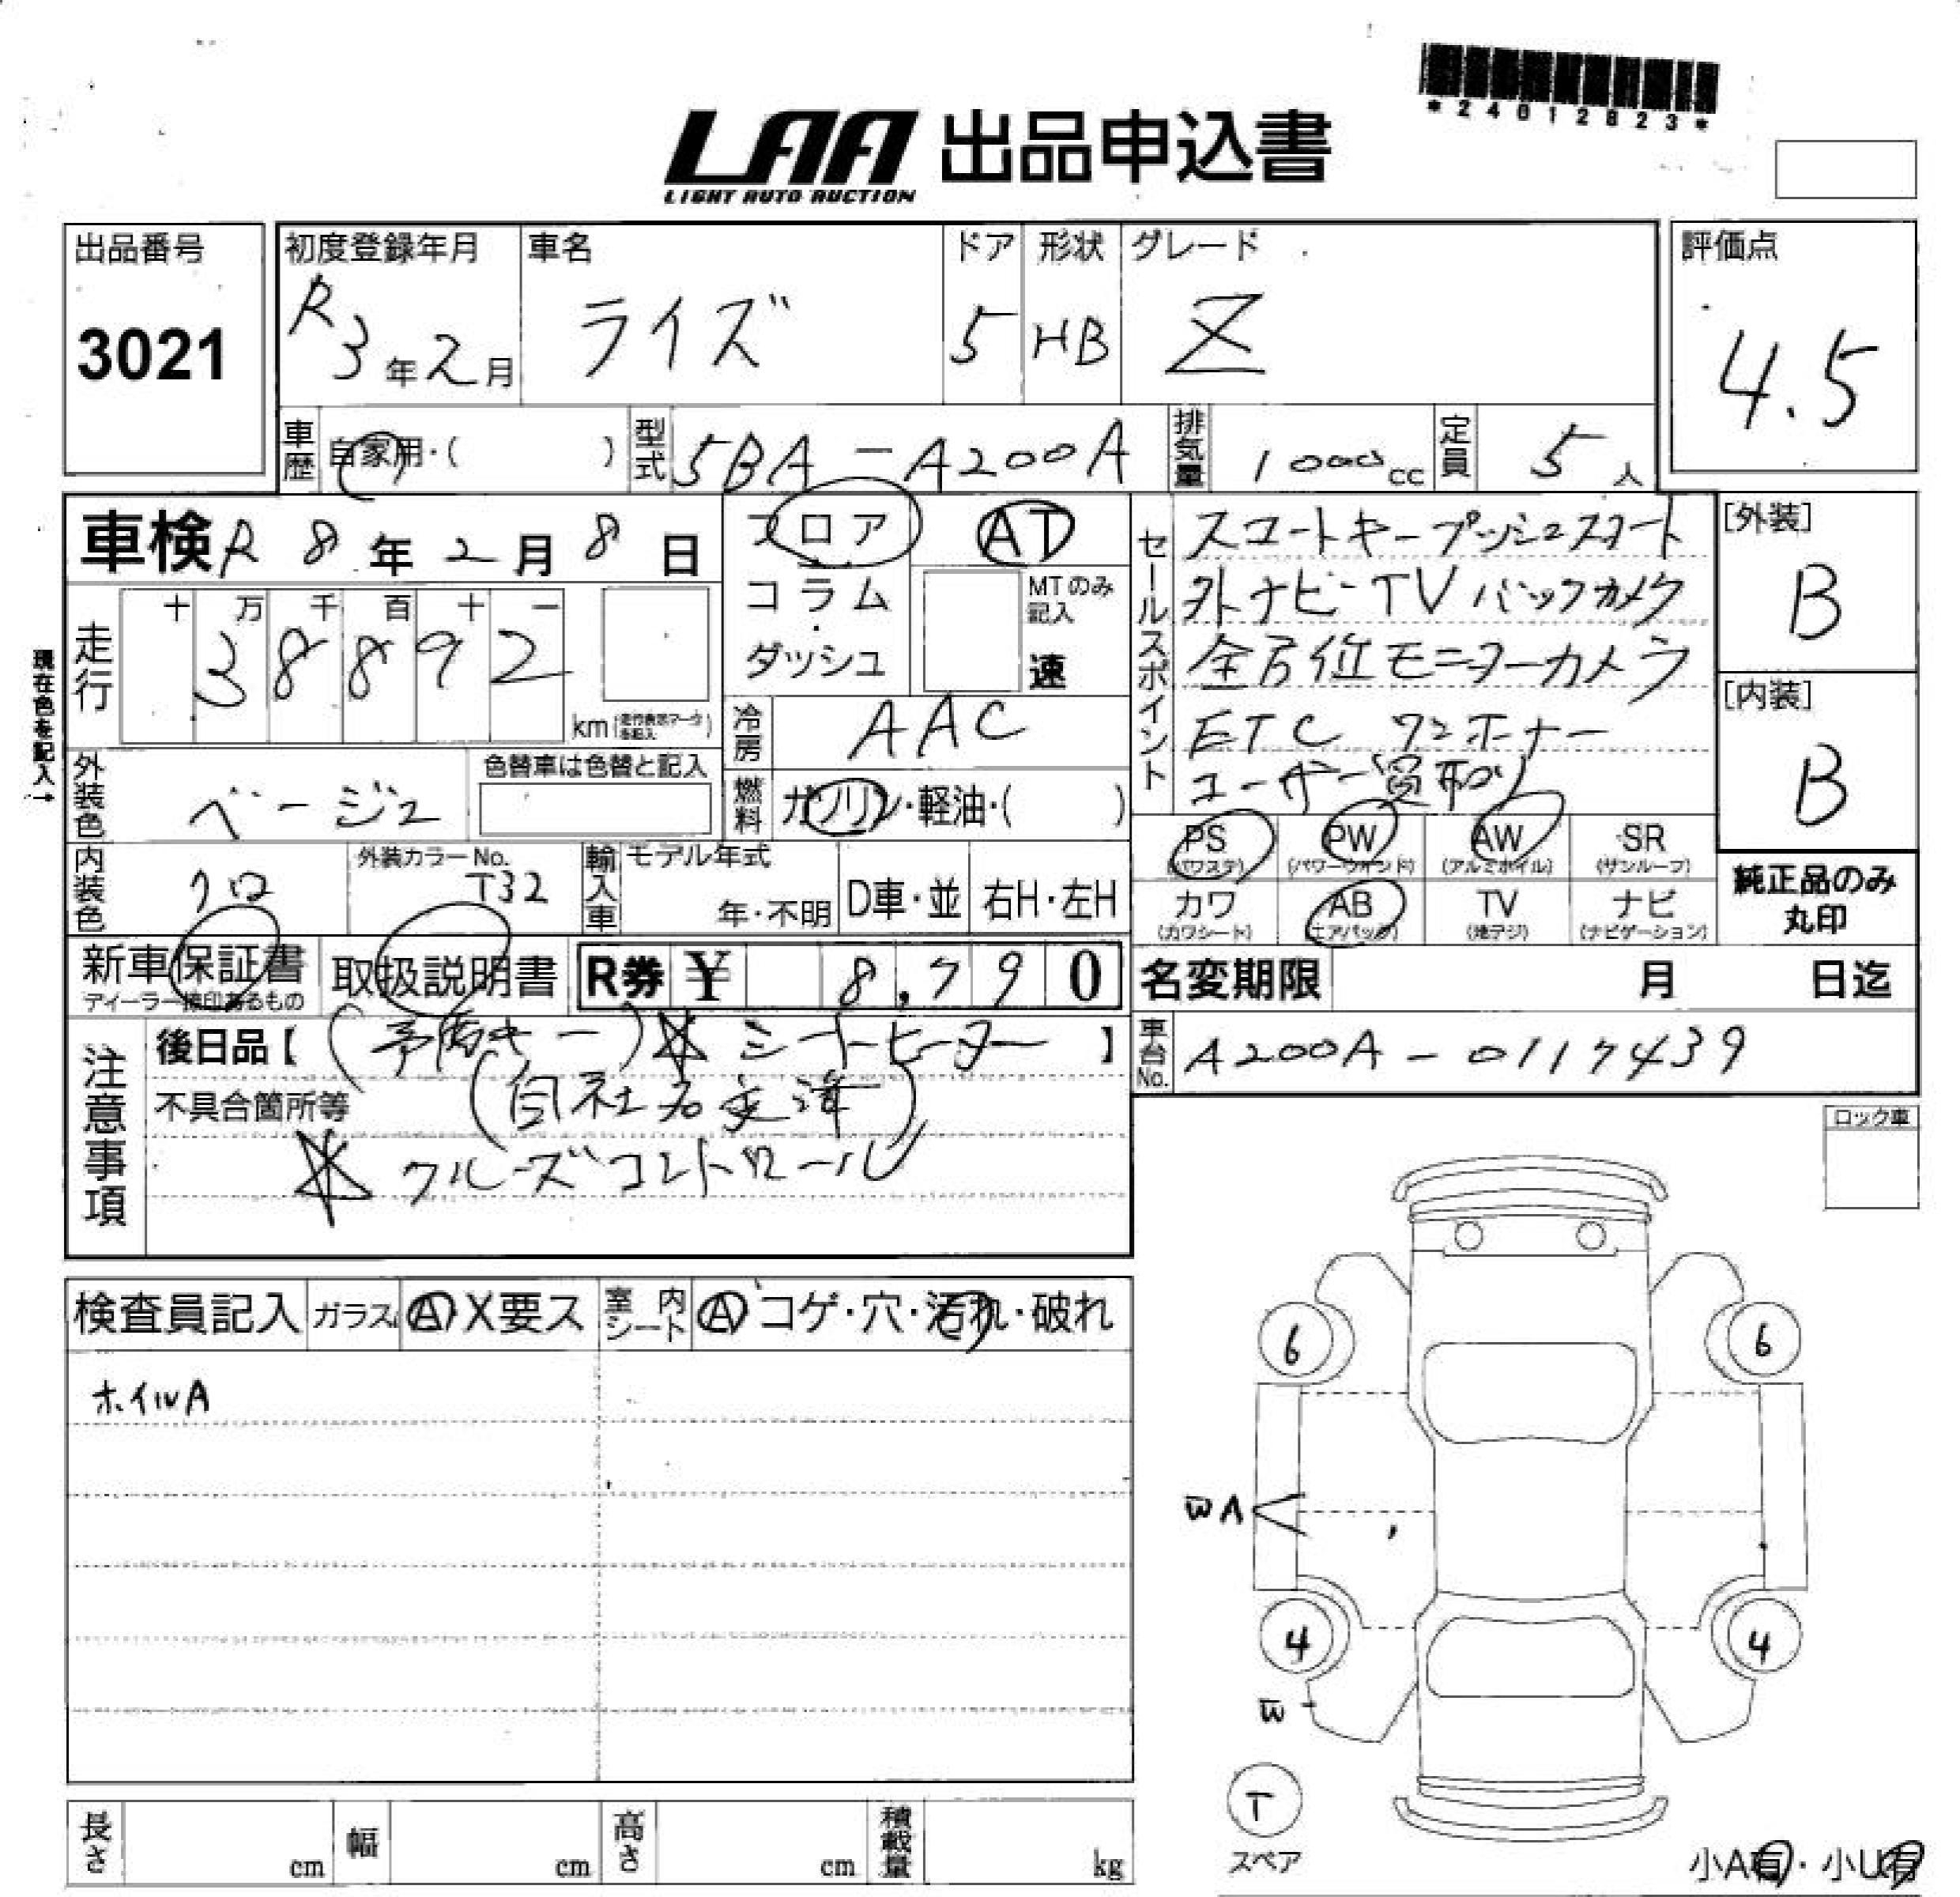 *24012823*
LAA 出品申込書
LIGHT AUTO AUCTION
出品番号
3021
初度登録年月
R3年2月
車名
ライズ
ドア
5
形状
HB
グレード
Z
評価点
4.5
車歴
自家用・( )
型式
5BA-A200A
排気量
1000cc
定員
5人
車検 R8年2月8日
フロア
コラム
ダッシュ
AT
MTのみ記入
速
セールスポイント
スマートキープッシュスタート
外ナビーTV バックカメラ
全方位モニターカメラ
ETC ワンオーナー
ユーザー買取り
[外装]
B
[内装]
B
現在色を記入→
走行
十 万 千 百 十 一
3 8 8 9 2
km
冷房
AAC
外装色
ベージュ
色替車は色替と記入
燃料
ガソリン・軽油・( )
PS
(パワステ)
PW
(パワーウインド)
AW
(アルミホイル)
SR
(サンルーフ)
カワ
(カワシート)
AB
(エアバック)
TV
(地デジ)
ナビ
(ナビゲーション)
純正品のみ
丸印
内装色
クロ
外装カラーNo.
T32
輸入車
モデル年式
年・不明
D車・並
右H・左H
新車保証書
ディーラー捺印あるもの
取扱説明書
R券 ¥ 8,790
名変期限 月 日迄
注意事項
後日品【 (予備キー)☆シートヒーター 】
不具合箇所等 (自社名変済)
☆ クルーズコントロール
車台No.
A200A-0117439
ロック車
検査員記入
ガラス
A X要ス
室内シート
A コゲ・穴・汚れ・破れ
ホイルA
6
6
WA
4
4
W
T
スペア
小A有・小U有
長さ cm
幅 cm
高さ cm
積載量 kg